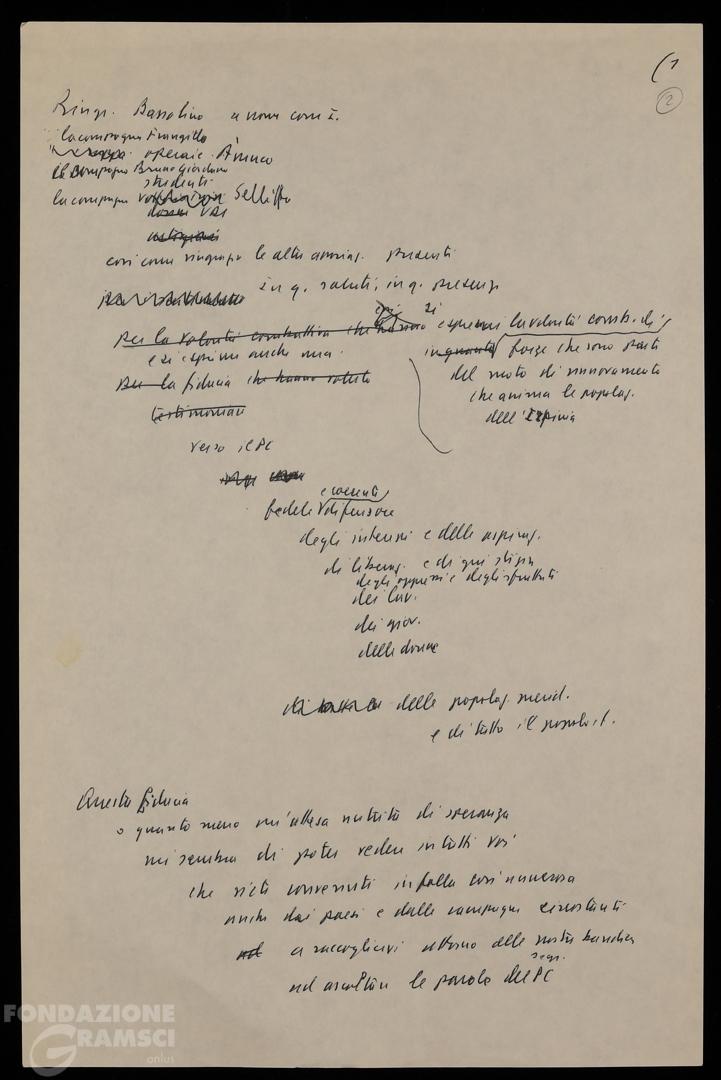 (1
2
Ringr. Bassolino a nome com I.
la compagna Frungillo
operaie Arnuco
il compagno Bruno Giordano
studenti
la compagna Sellitto
così come ringrazio le altre annng. presenti
in q. saluti, in q. presenze
per la volontà combattiva che hanno espri si esprime la volontà comb. di
e si esprime anche una in quanto forze che sono parti
per la fiducia che hanno voluto del moto di rinnovamento
testimoniare che anima le popolaz.
dell'Irpinia
verso il PC
e coerente
fedele difensore
degli interessi e delle aspiraz.
di libertà e di giustizia
degli oppressi e degli sfruttati
dei lav.
dei giov.
delle donne
delle popolaz. merid.
e di tutto il popolo it.
Questa fiducia
o quanto meno un'attesa nutrita di speranza
mi sembra di poter vedere in tutti voi
che siete convenuti in folla così numerosa
anche dai paesi e dalle campagne circostanti
ad a raccogliervi attorno alle nostre bandiere
segr.
ad ascoltare le parole del PC
FONDAZIONE
GRAMSCI
onlus